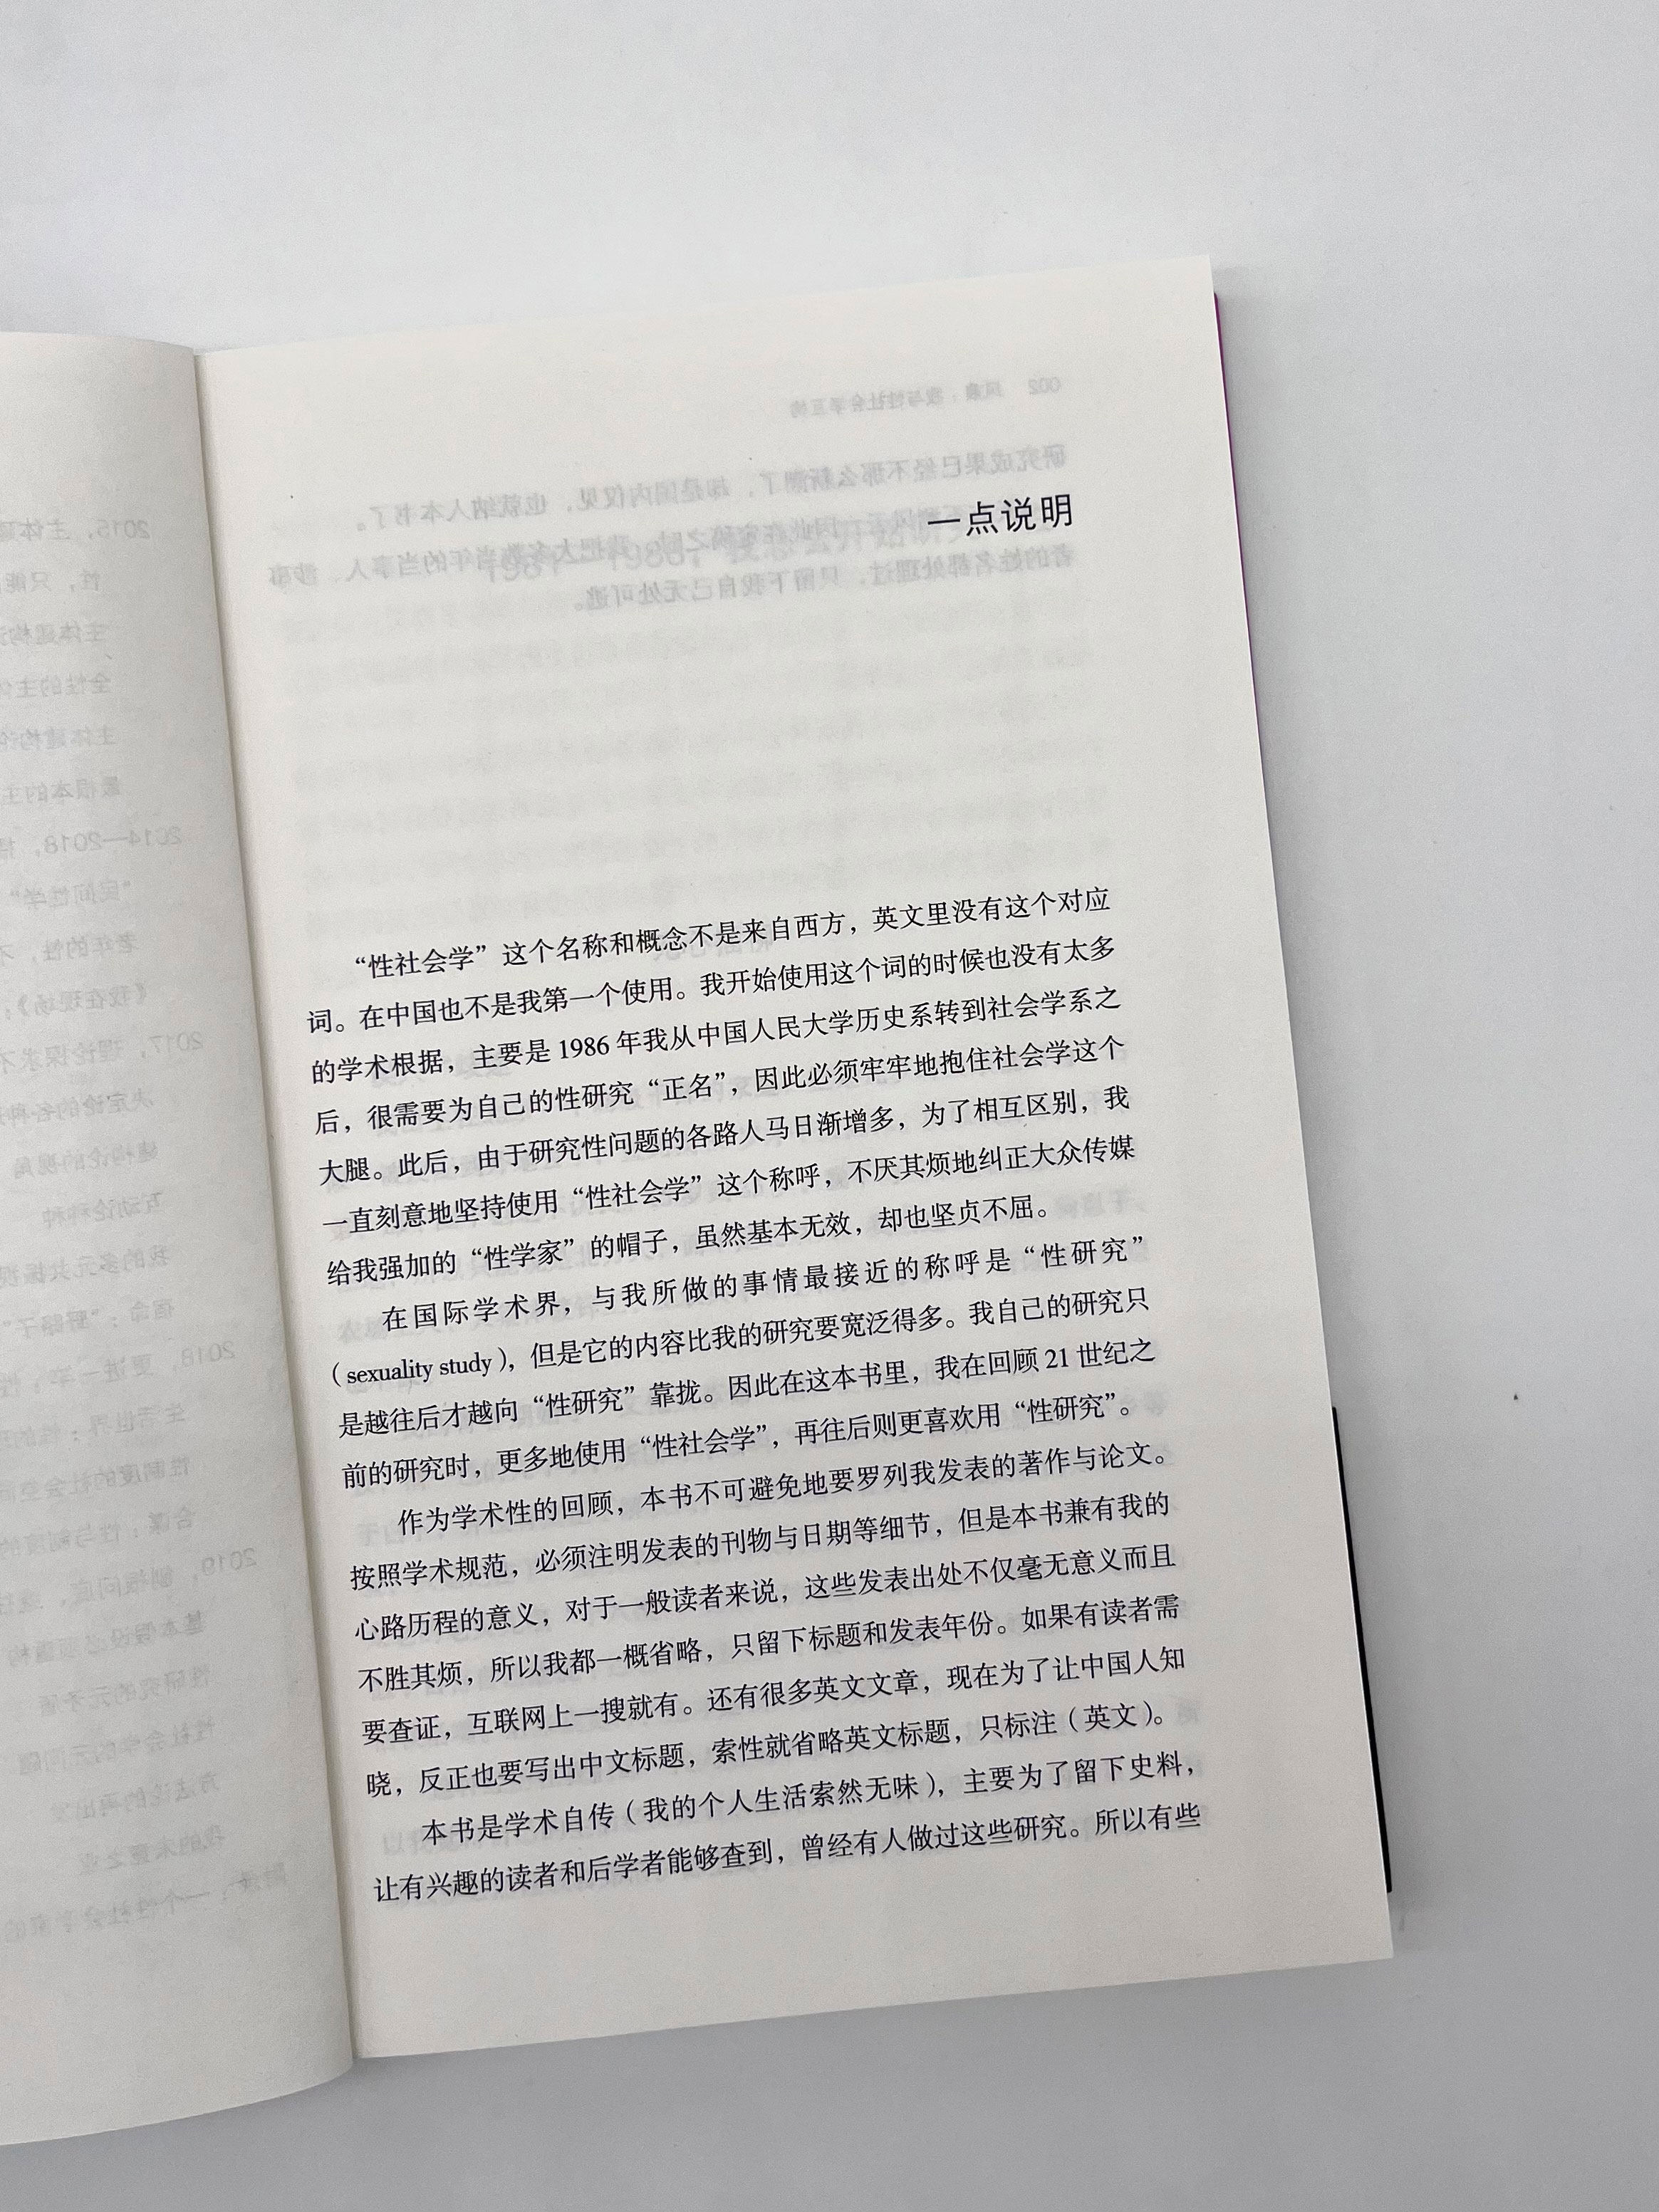 一点说明
“性社会学”这个名称和概念不是来自西方，英文里没有这个对应
词。在中国也不是我第一个使用。我开始使用这个词的时候也没有太多
的学术根据，主要是 1986 年我从中国人民大学历史系转到社会学系之
后，很需要为自己的性研究“正名”，因此必须牢牢地抱住社会学这个
大腿。此后，由于研究性问题的各路人马日渐增多，为了相互区别，我
一直刻意地坚持使用“性社会学”这个称呼，不厌其烦地纠正大众传媒
给我强加的“性学家”的帽子，虽然基本无效，却也坚贞不屈。
在国际学术界，与我所做的事情最接近的称呼是“性研究”
（sexuality study），但是它的内容比我的研究要宽泛得多。我自己的研究只
是越往后才越向“性研究”靠拢。因此在这本书里，我在回顾 21 世纪之
前的研究时，更多地使用“性社会学”，再往后则更喜欢用“性研究”。
作为学术性的回顾，本书不可避免地要罗列我发表的著作与论文。
按照学术规范，必须注明发表的刊物与日期等细节，但是本书兼有我的
心路历程的意义，对于一般读者来说，这些发表出处不仅毫无意义而且
不胜其烦，所以我都一概省略，只留下标题和发表年份。如果有读者需
要查证，互联网上一搜就有。还有很多英文文章，现在为了让中国人知
晓，反正也要写出中文标题，索性就省略英文标题，只标注（英文）。
本书是学术自传（我的个人生活索然无味），主要为了留下史料，
让有兴趣的读者和后学者能够查到，曾经有人做过这些研究。所以有些